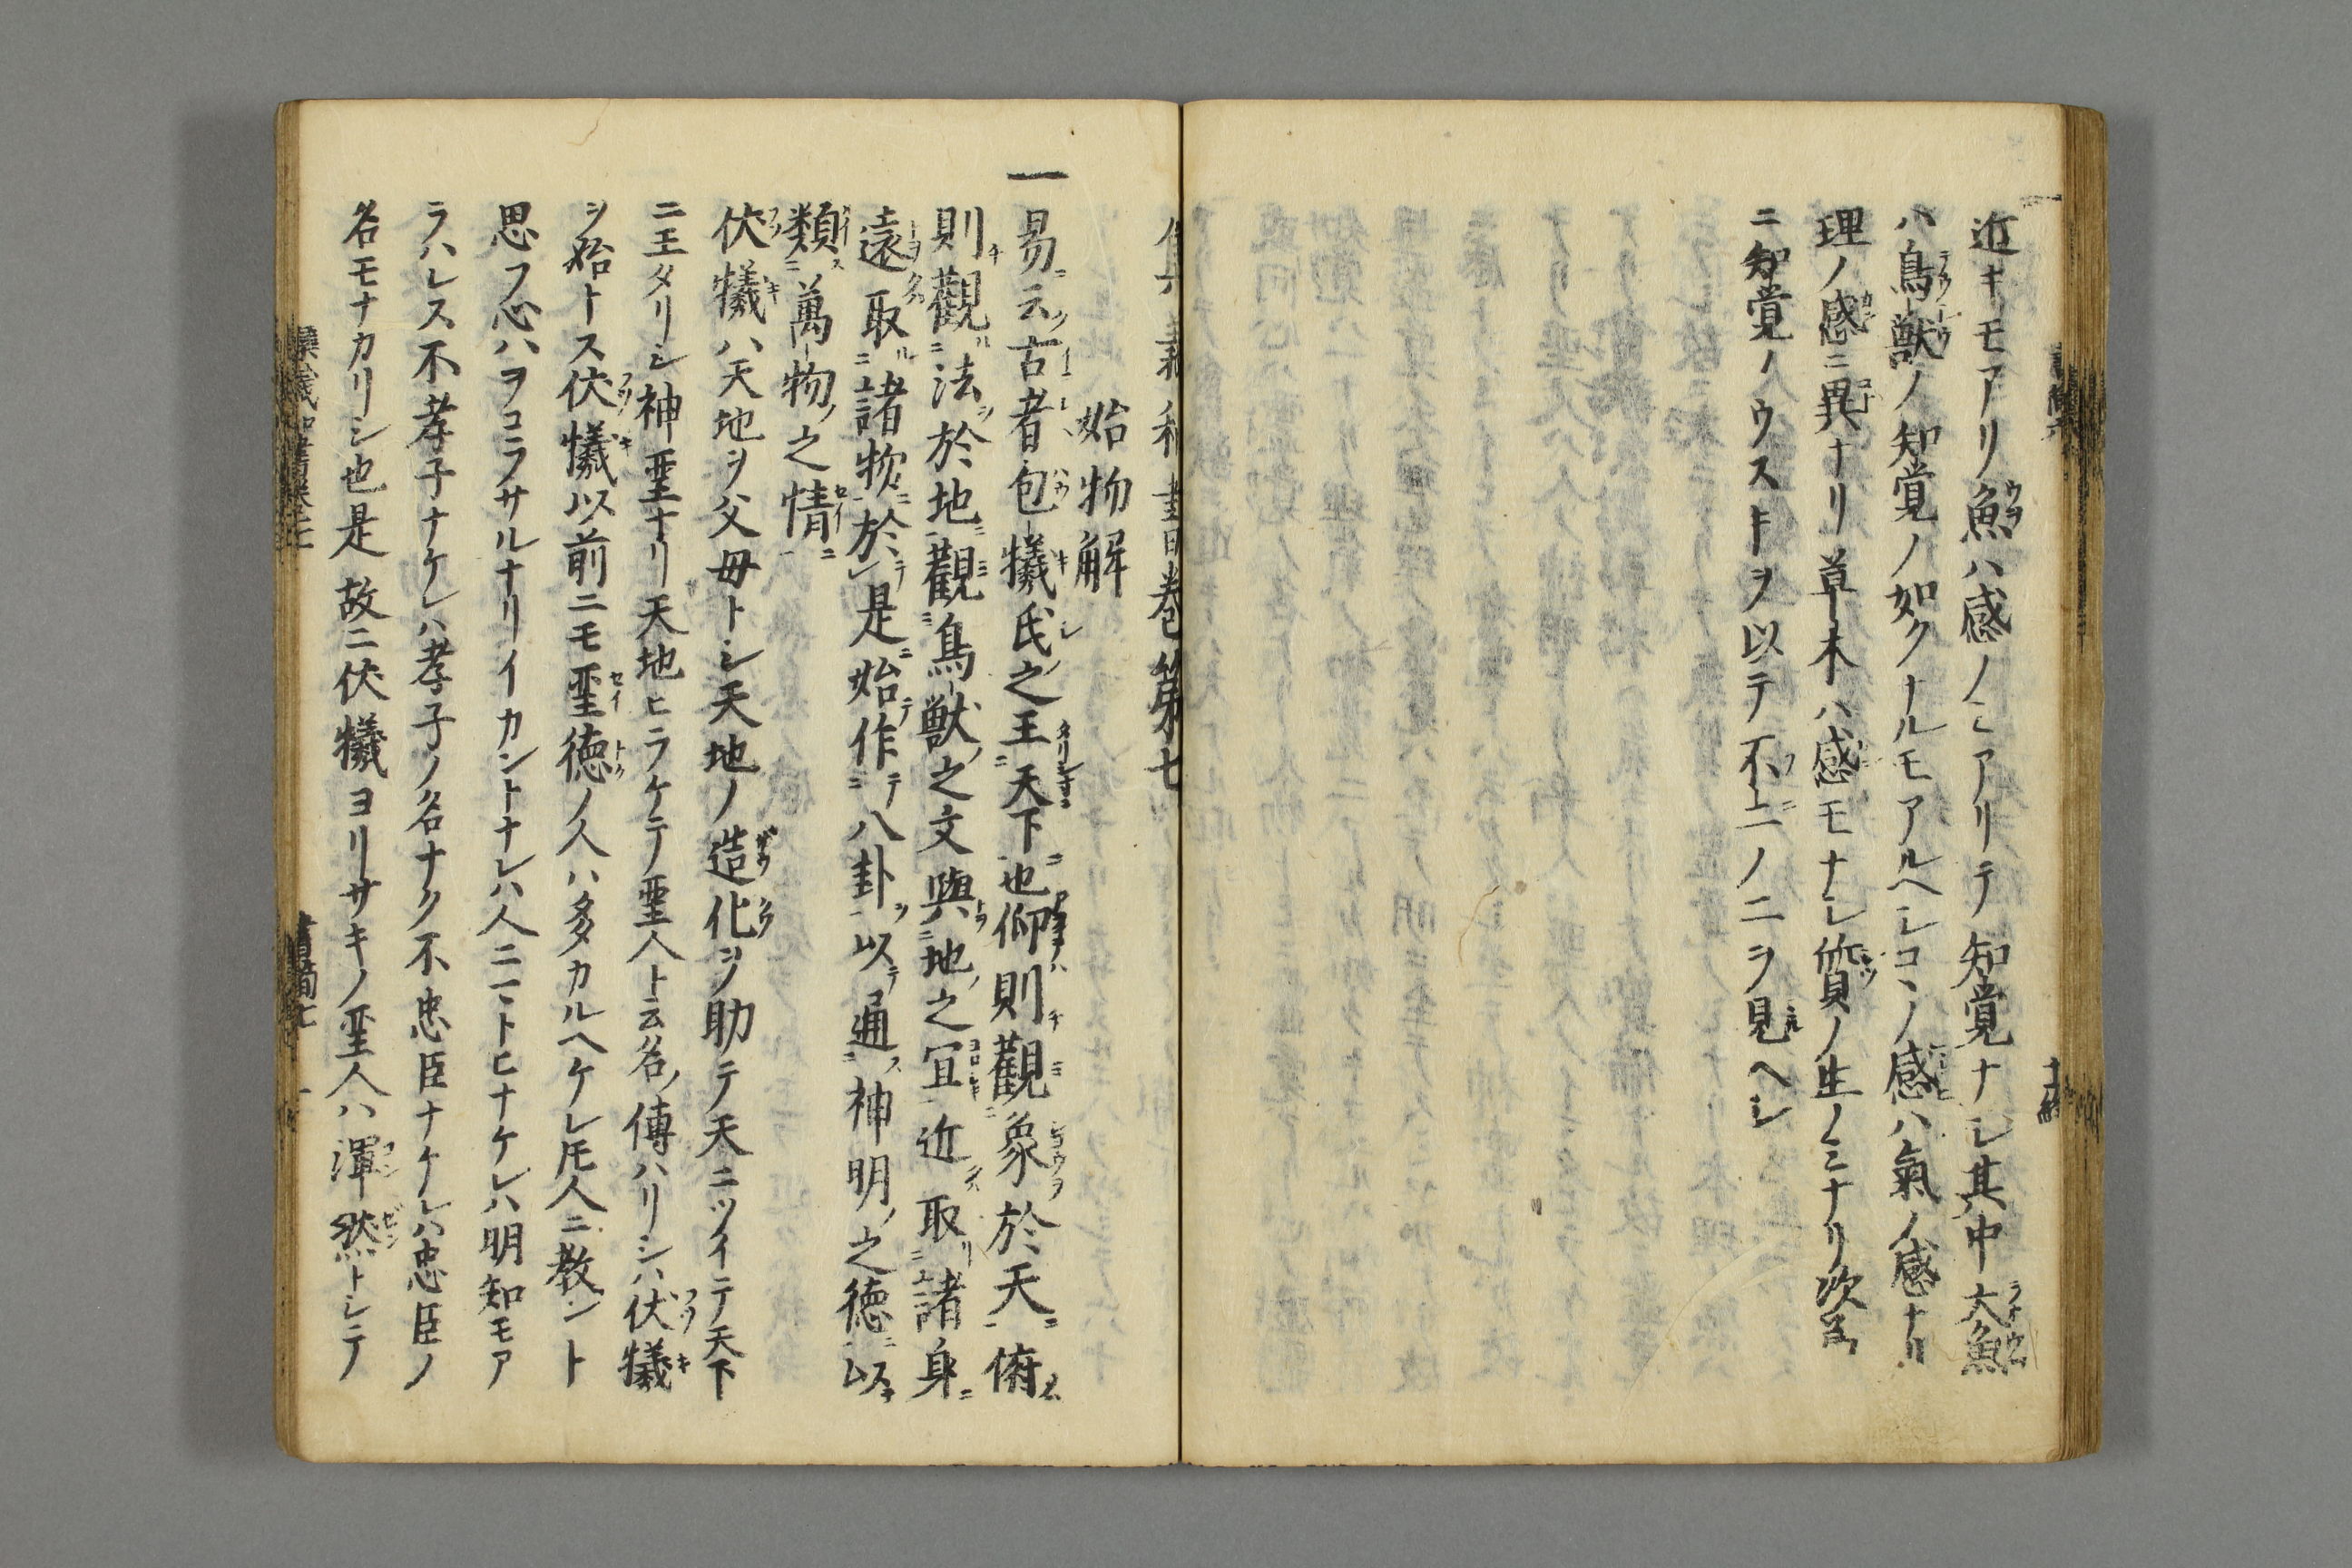 近キモアリ魚ハ感ノミアリテ知覚ナシ其中大魚
ハ鳥獣ノ知覚ノ如クナルモアルヘシコヽノ感ハ氣ノ感ナリ
理ノ感ニ異ナリ草木ハ感モナシ質ノ生ノミナリ次
ニ知覚ノウスキヲ以テ不上ノ二ヲ見ヘシ
集義和書巻第七
始物解
一易云古者包犧氏之王天下也仰則觀象於天俯
則觀法於地觀鳥獣之文與地之宜近取諸身
遠取諸物於是始作八卦以通神明之徳以
類萬物之情
伏犧ハ天地ヲ父母トシ天地ノ造化ヲ助テ天ニツイテ天下
ニ王タリシ神聖ナリ天地ヒラケテ聖人ト云名ノ傳ハリシハ伏犧
ヲ始トス伏犧以前ニモ聖徳ノ人ハ多カルヘケレ𪜈人ニ教ント
思フ心ハヲコラサルナリイカントナレハ人ニコトヒナケレハ明知モア
ラハレス不孝子ナケレハ孝子ノ名ナク不忠臣ナケレハ忠臣ノ
名モナカリシ也是故ニ伏犧ヨリサキノ聖人ハ渾然トシテ
書簡七 一